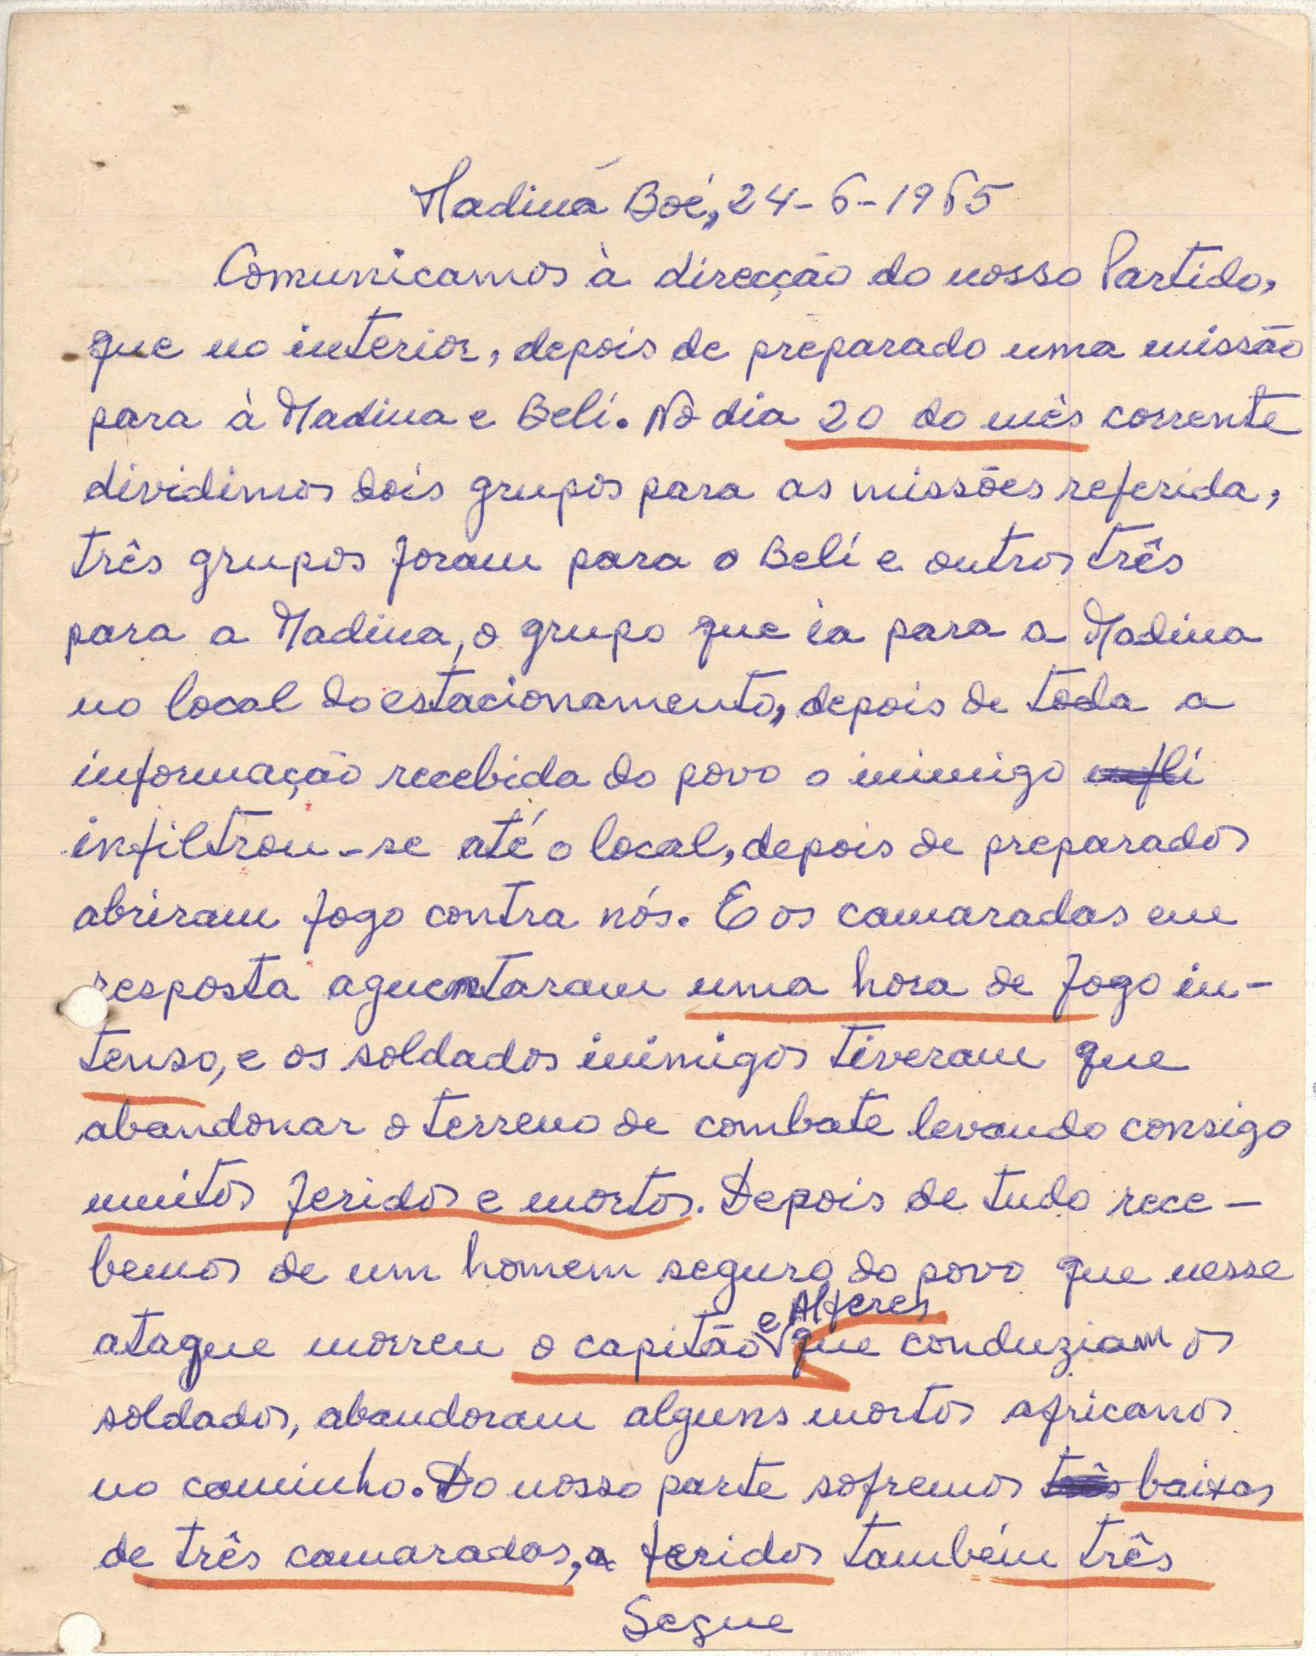 Madina Boé, 24-6-1965
Comunicamos à direcção do nosso Partido,
que no interior, depois de preparado uma missão
para à Madina e Beli. No dia 20 do mês corrente
dividimos dois grupos para as missões referida,
três grupos foram para o Beli e outros três
para a Madina, o grupo que ia para a Madina
no local do estacionamento, depois de toda a
informação recebida do povo o inimigo
infiltrou-se até o local, depois de preparados
abriram fogo contra nós. E os camaradas em
resposta aguentaram uma hora de fogo in-
tenso, e os soldados inimigos tiveram que
abandonar o terreno de combate levando consigo
muitos feridos e mortos. Depois de tudo rece-
bemos de um homem seguro do povo que nesse
ataque morreu o capitão e Alferes que conduziam os
soldados, abandoram alguns mortos africanos
no caminho. Do nosso parte sofremos baixas
de três camaradas, a feridos também três
Segue